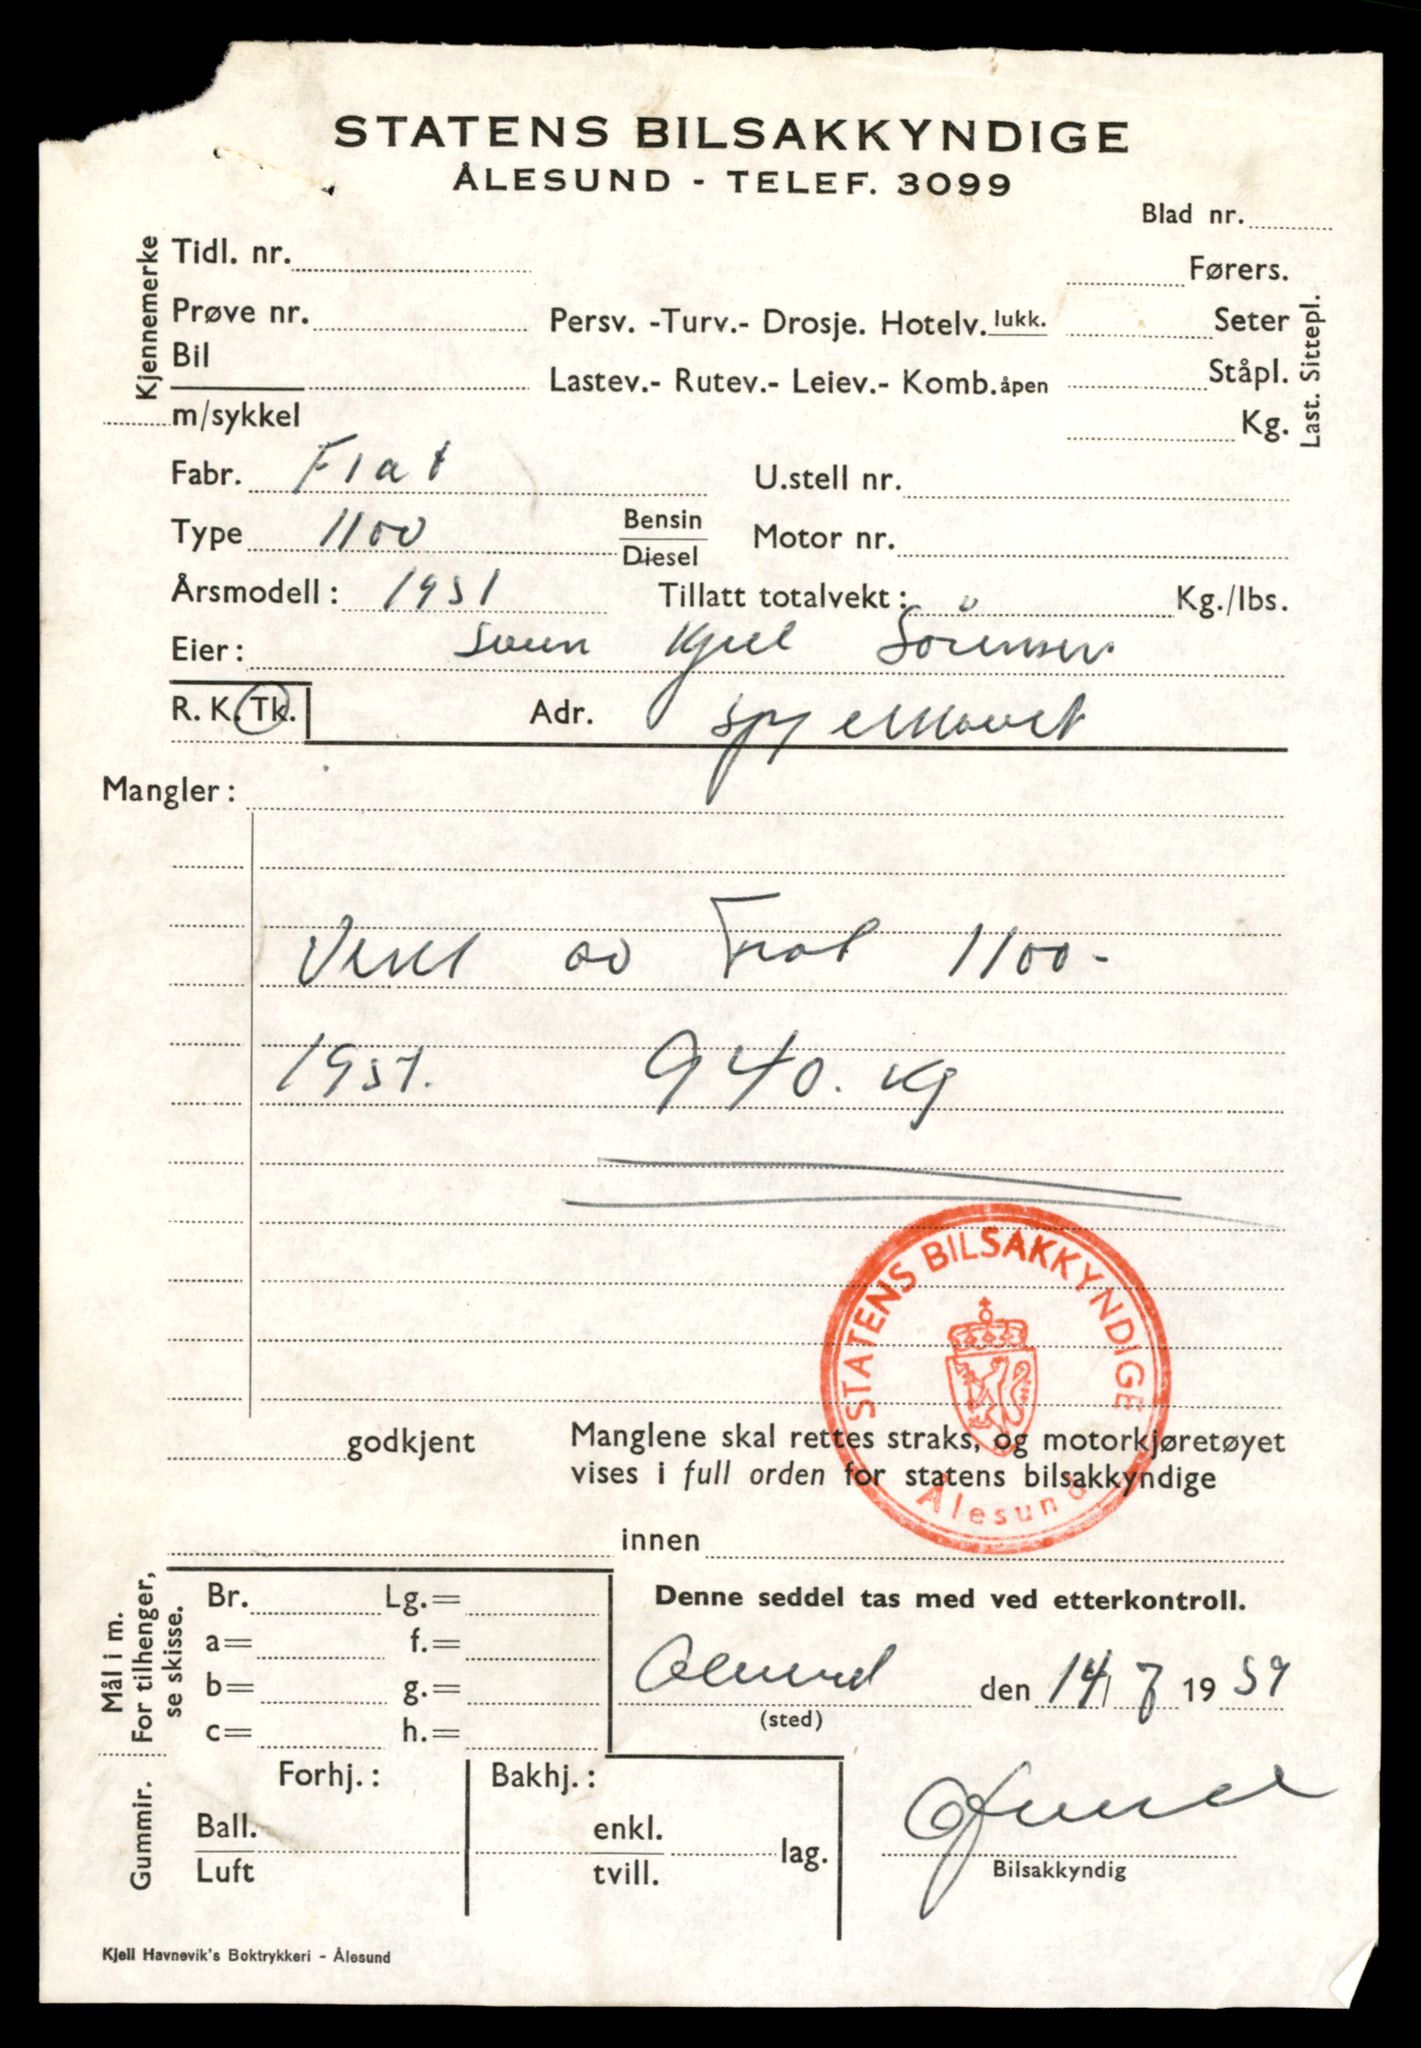 STATENS BILSAKKYNDIGE
ÅLESUND - TELEF. 3099
Blad nr.
Kjennemerke
Tidl. nr.
Førers.
Prøve nr.
Persv. -Turv.- Drosje. Hotelv. lukk.
Seter
Bil
Lastev.- Rutev.- Leiev.- Komb. åpen
Ståpl.
m/sykkel
Kg.
Last. Sittepl.
Fabr. Fiat
U.stell nr.
Type 1100
Bensin
Diesel
Motor nr.
Årsmodell: 1951
Tillatt totalvekt: Kg./lbs.
Eier: Svein Kjell Sörensen
R. K. Tk.
Adr. Spjelkavik
Mangler:
Vekt av Fiat 1100-
1951. 940. kg
STATENS BILSAKKYNDIGE
Ålesund
godkjent
Manglene skal rettes straks, og motorkjøretøyet
vises i full orden for statens bilsakkyndige
innen
Mål i m.
For tilhenger,
se skisse.
Br. Lg.=
a= f.=
b= g.=
c= h.=
Denne seddel tas med ved etterkontroll.
Ålesund den 14/7 1959
(sted)
Gummir.
Forhj.:
Bakhj.:
Ball.
Luft
enkl.
tvill.
lag.
Bilsakkyndig
Kjell Havnevik's Boktrykkeri - Ålesund